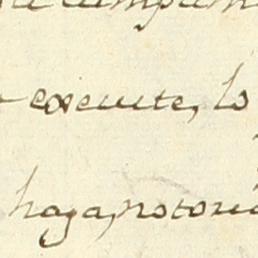 execute, lo
haga, notorio